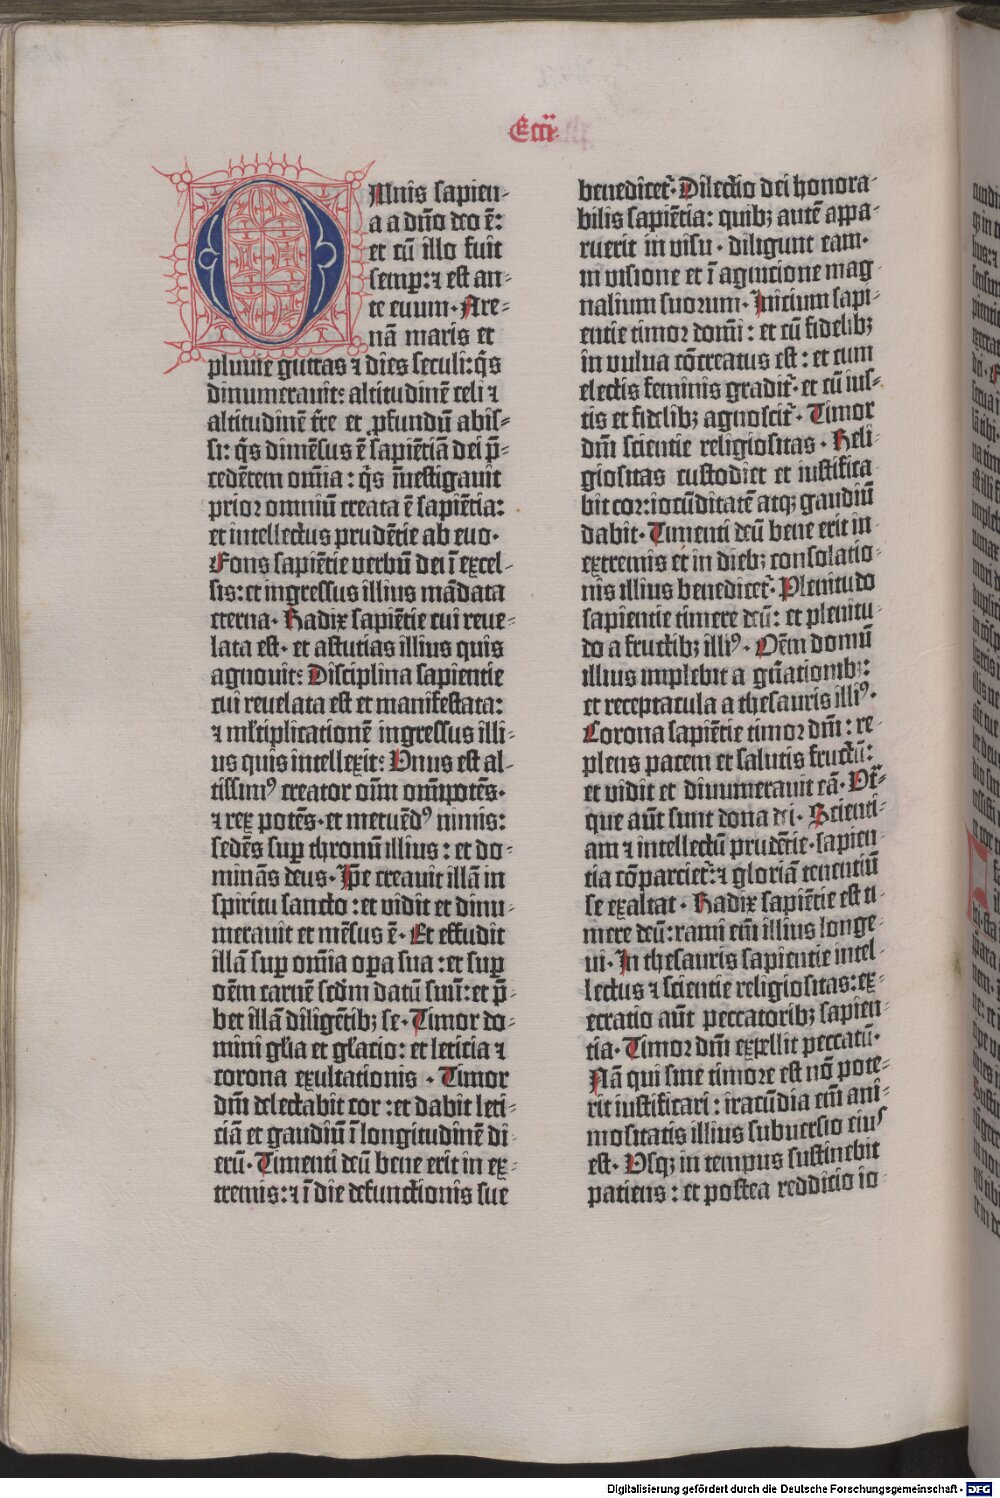 Eccͥ
OMnis sapien-
a a dño deo ē:
et cū illo fuit
semp̲: ⁊ est an-
te euum. Are-
nā maris et
pluuie guttas ⁊ dies seculi: q̊s
dinumerauit: altitudinē celi ⁊
altitudinē t̄re et ꝓfundū abis-
si: q̊s dimēsus ē sapiētiā dei p̄-
cedētem om̄ia: q̊s īuestigauit
prior omniū creata ē sapiētia:
et intellectus prudētie ab euo.
Fons sapiētie verbū dei ī excel-
sis: et ingressus illius mādata
eterna. Radix sapiētie cui reue-
lata est. et astutias illius quis
agnouit: Disciplina sapientie
cui reuelata est et manifestata:
⁊ ml̄tiplicationē ingressus illi-
us quis intellexit: Vnus est al-
tissimꝰ creator oīm om̄ipotēs.
⁊ rex potēs. et metuēdꝰ nimis:
sedēs sup̲ thronū illius: et do-
minās deus. Ip̄e creauit illā in
spiritu sancto: et vidit et dinu-
merauit et mēsus ē. Et effudit
illā sup̲ om̄ia op̲a sua: et sup̲
oēm carnē scd̄m datū suū: et p̄-
bet illā diligētibꝫ se. Timor do-
mini gl̄ia et gl̄atio: et leticia ⁊
corona exultationis. Timor
dn̄i delectabit cor: et dabit leti-
ciā et gaudiū ī longitudinē di-
erū. Timenti deū bene erit in ex-
tremis: ⁊ ī die defunctionis sue
benedicet᷑. Dilectio dei honora-
bilis sapiētia: quibꝫ autē appa-
ruerit in visu. diligunt eam.
in visione et ī agnicione mag-
nalium suorum. Inicium sapi-
entie timor domī: et cū fidelibꝫ
in vulua cōcreatus est: et cum
electis feminis gradit᷑. et cū ius-
tis et fidelibꝫ agnoscit᷑. Timor
dn̄i scientie religiositas. Reli-
giositas custodiet et iustifica-
bit cor: iocūditatē atqꝫ gaudiū
dabit. Timenti deū bene erit in
extremis et in diebꝫ consolatio-
nis illius benedicet᷑. Plenitudo
sapientie timere deū: et plenitu-
do a fructibꝫ illiꝰ. Oēm domū
illius implebit a gn̄ationibꝫ:
et receptacula a thesauris illiꝰ.
Corona sapiētie timor dn̄i: re-
plens pacem et salutis fructū:
et vidit et dinumerauit eā. Vt᷑-
que aūt sunt dona dei. Scienti-
am ⁊ intellectū prudētie. sapien-
tia cōparciet᷑: ⁊ gloriā tenentiū
se exaltat. Radix sapiētie est ti-
mere deū: rami eīm illius longe-
ui. In thesauris sapientie intel-
lectus ⁊ scientie religiositas: ex-
ecratio aūt peccatoribꝫ sapien-
tia. Timor dn̄i expellit peccatū.
Nā qui sine timore est nō pote-
rit iustificari: iracūdia eīm ani-
mositatis illius subuersio eiuſ
est. Vsqꝫ in tempus sustinebit
patiens: et postea reddicio io-
Digitalisierung gefördert durch die Deutsche Forschungsgemeinschaft - DFG